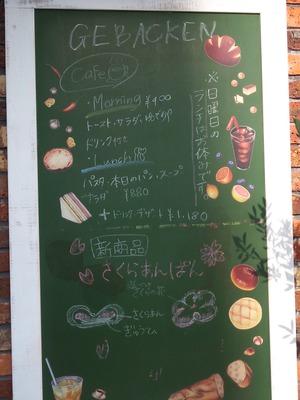 GEBACKEN
Cafe
・Morning ¥400
トースト・サラダ・ゆでタマゴ
ドリンク付
・Lunch
パスタ・本日のパン・スープ
サラダ ¥880
+ドリンク・デザート ¥1,180
※日曜日の
ランチはお休みです。
新商品
さくらあんぱん
さくらの花
さくらあん
ぎゅうひ